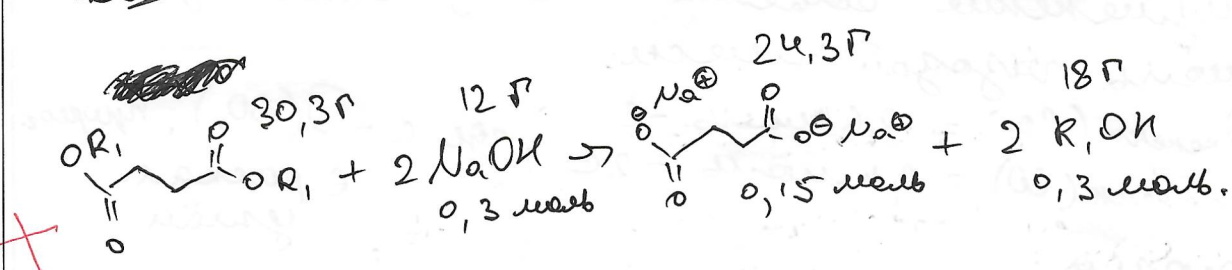 30,3г 12 г 24,3г 18 г
OR₁ O OR₁ O + 2 NaOH → Na⊕ ⊖O O O O⊖ Na⊕ + 2 R₁OH
0,3 моль 0,15 моль 0,3 моль.